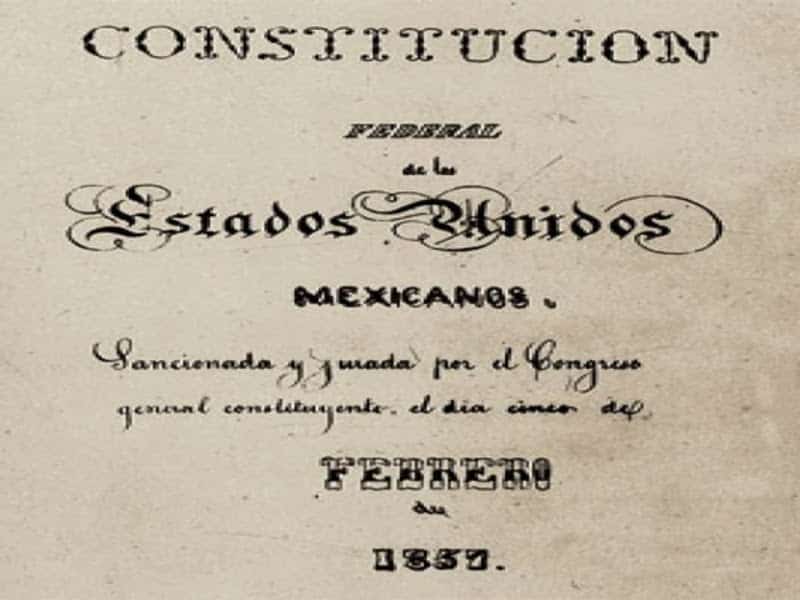 CONSTITUCION
FEDERAL
de los
Estados Unidos
MEXICANOS.
Sancionada y jurada por el Congreso
general constituyente, el dia cinco de
FEBRERO
de
1857.